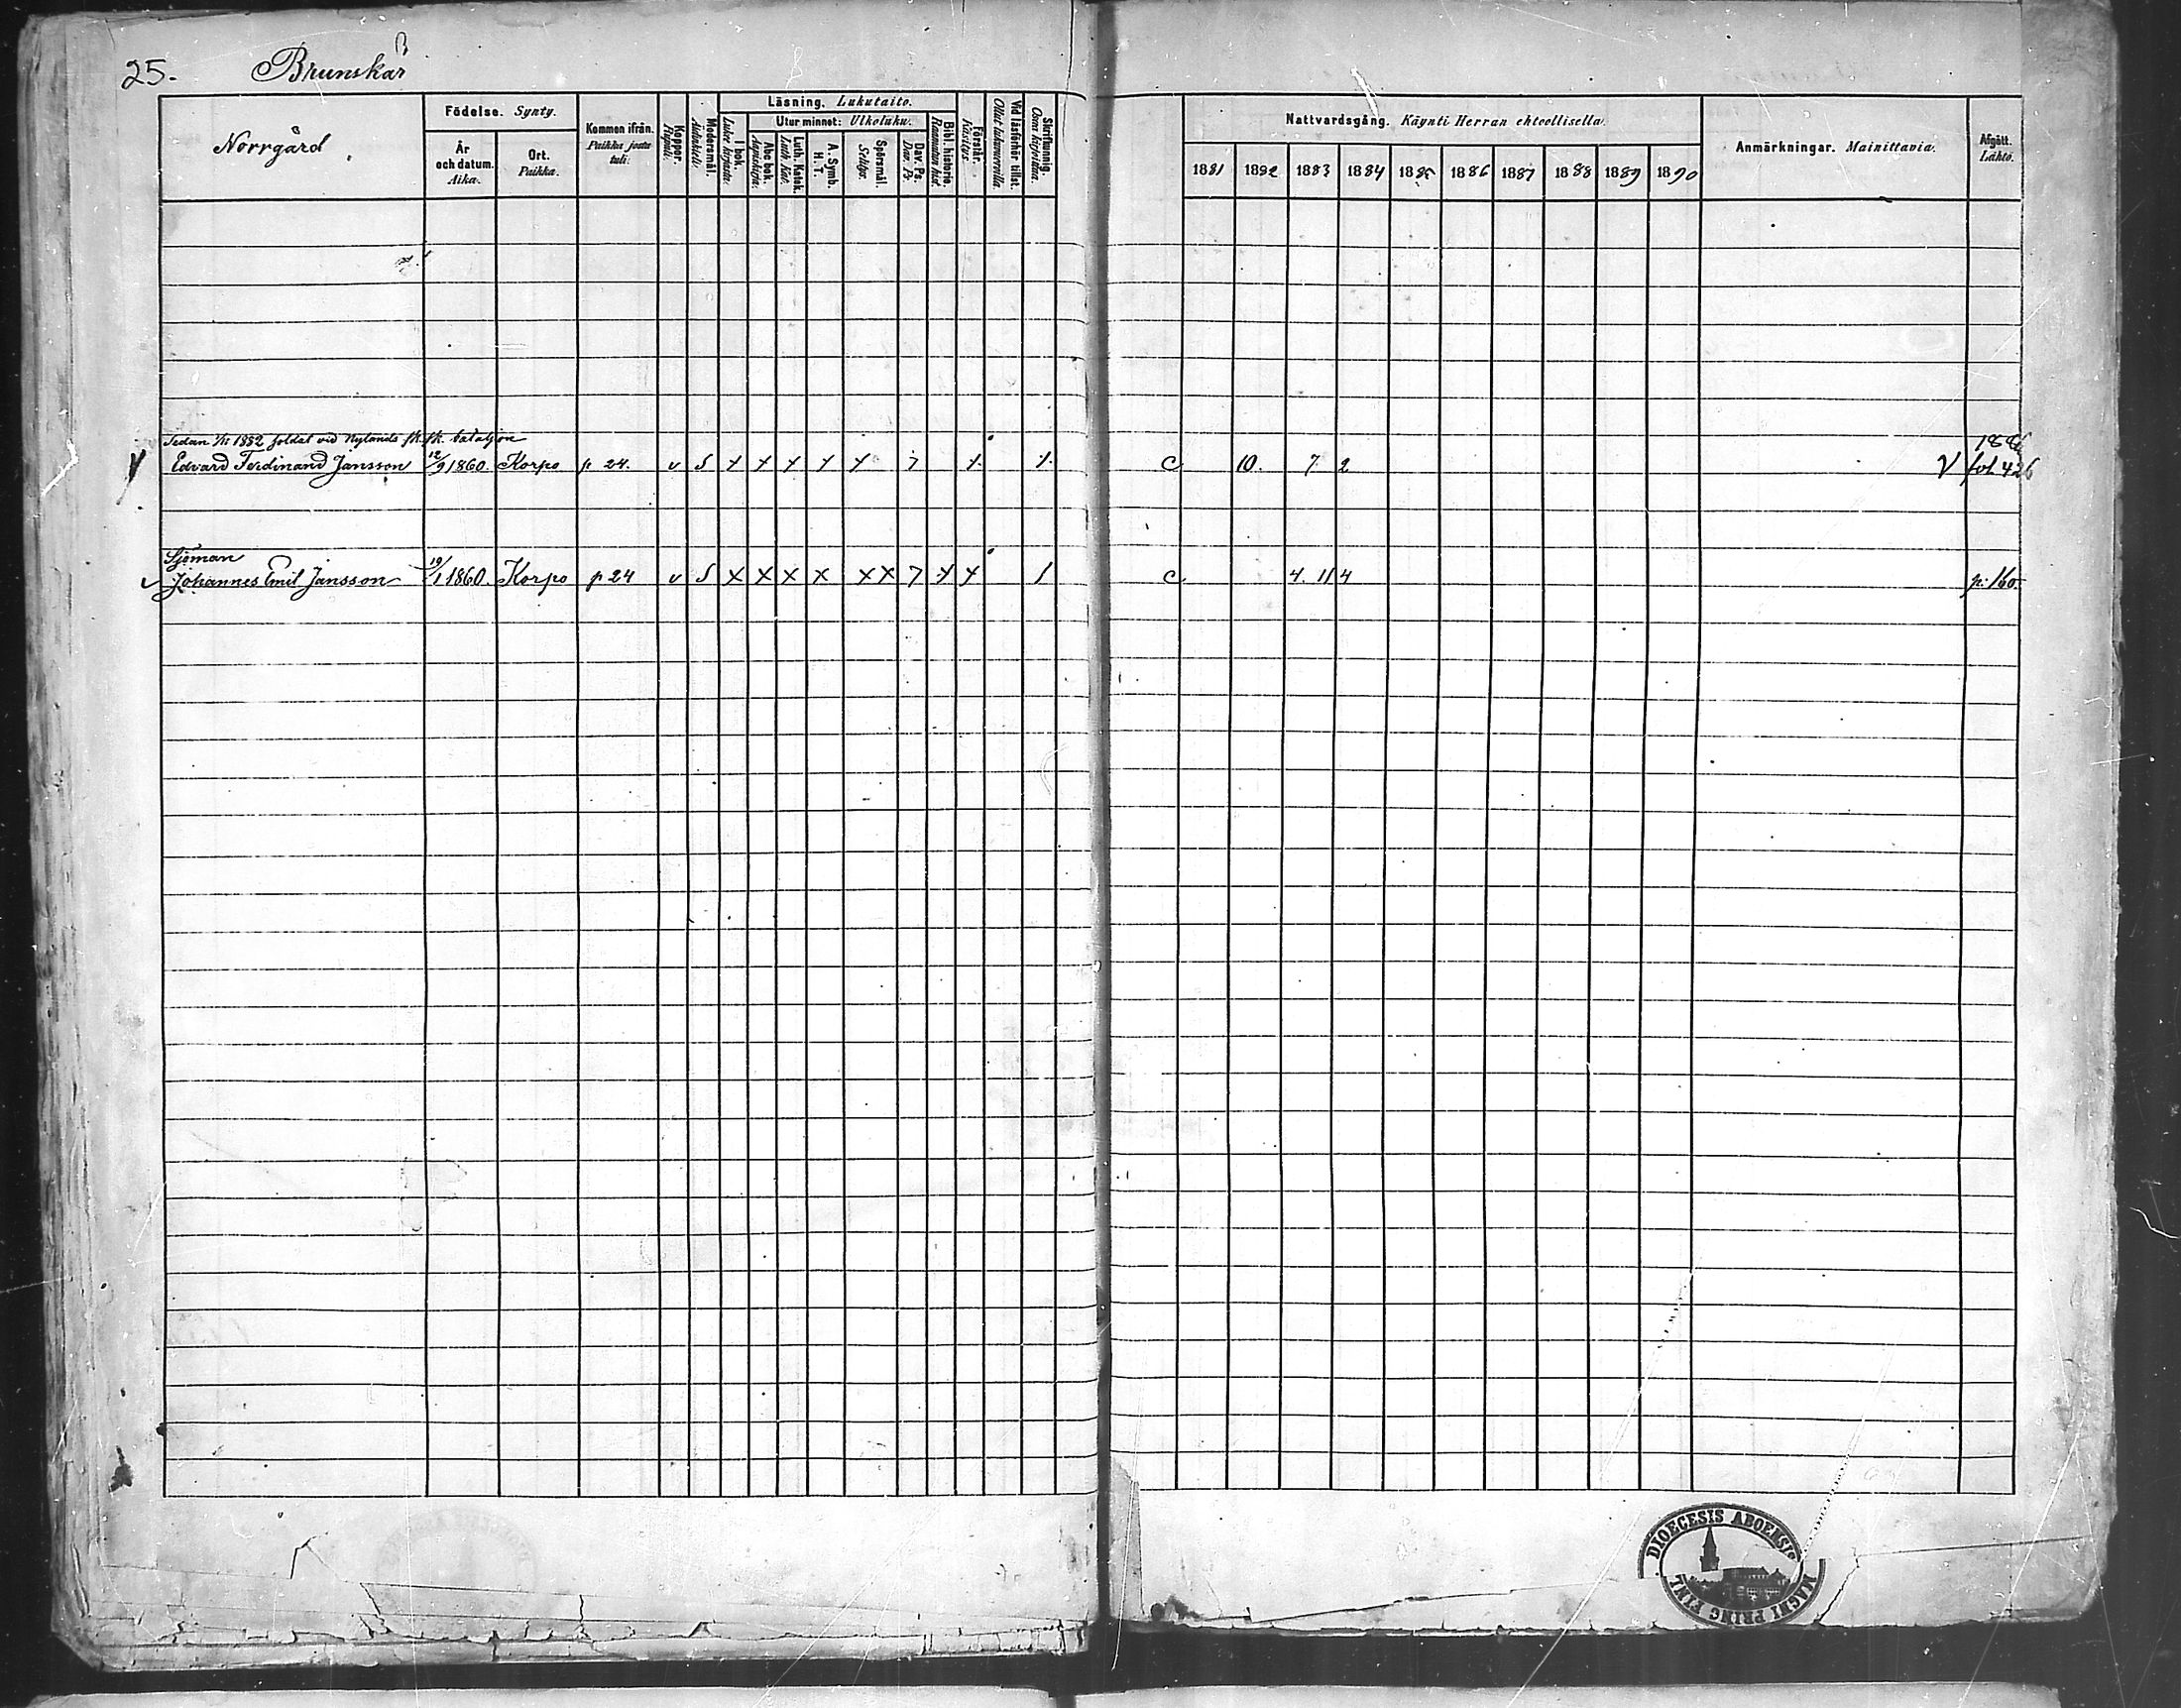 25. Brunskär B
Norrgård
Födelse. Synty.
År och datum. Aika.
Ort. Paikka.
Kommen ifrån. Paikka josta tuli:
Koppor. Rupuli.
Modersmål. Äidinkieli.
Läsning. Lukutaito.
I bok. Luku kirjasta.
Utur minnet: Ulkoluku.
Abc bok. Aapiskirja.
Luth. Katek. Luth. Kat.
A. Symb. H. T.
Spörsmål. Selitys.
Dav. Ps. Daw. Ps.
Bibl. historia. Raamatun hist.
Förstår. Käsitys.
Vid läsförhör tillst. Ollut lukukinkerillä.
Skriftkunnig. Osaa kirjoittaa.
Nattvardsgång. Käynti Herran ehtoollisella.
1881 1882 1883 1884 1885 1886 1887 1888 1889 1890
Anmärkningar. Mainittavia.
Afgått. Lähtö.
Sedan 1/11 1882 soldat vid Nylands sk. sk. bataljon
Edvard Ferdinand Jansson 12/9 1860. Korpo p 24. v S x x x x x 7 x 1. c 10. 7. 2 V 1886 fol. 426
Sjöman
Johannes Emil Jansson 19/1 1860 Korpo p 24 v S x x x x x x 7 x x 1 c 4. 11 4 p. 160.
DIOECESIS ABOENSIS
MAGNI PRINC FINL